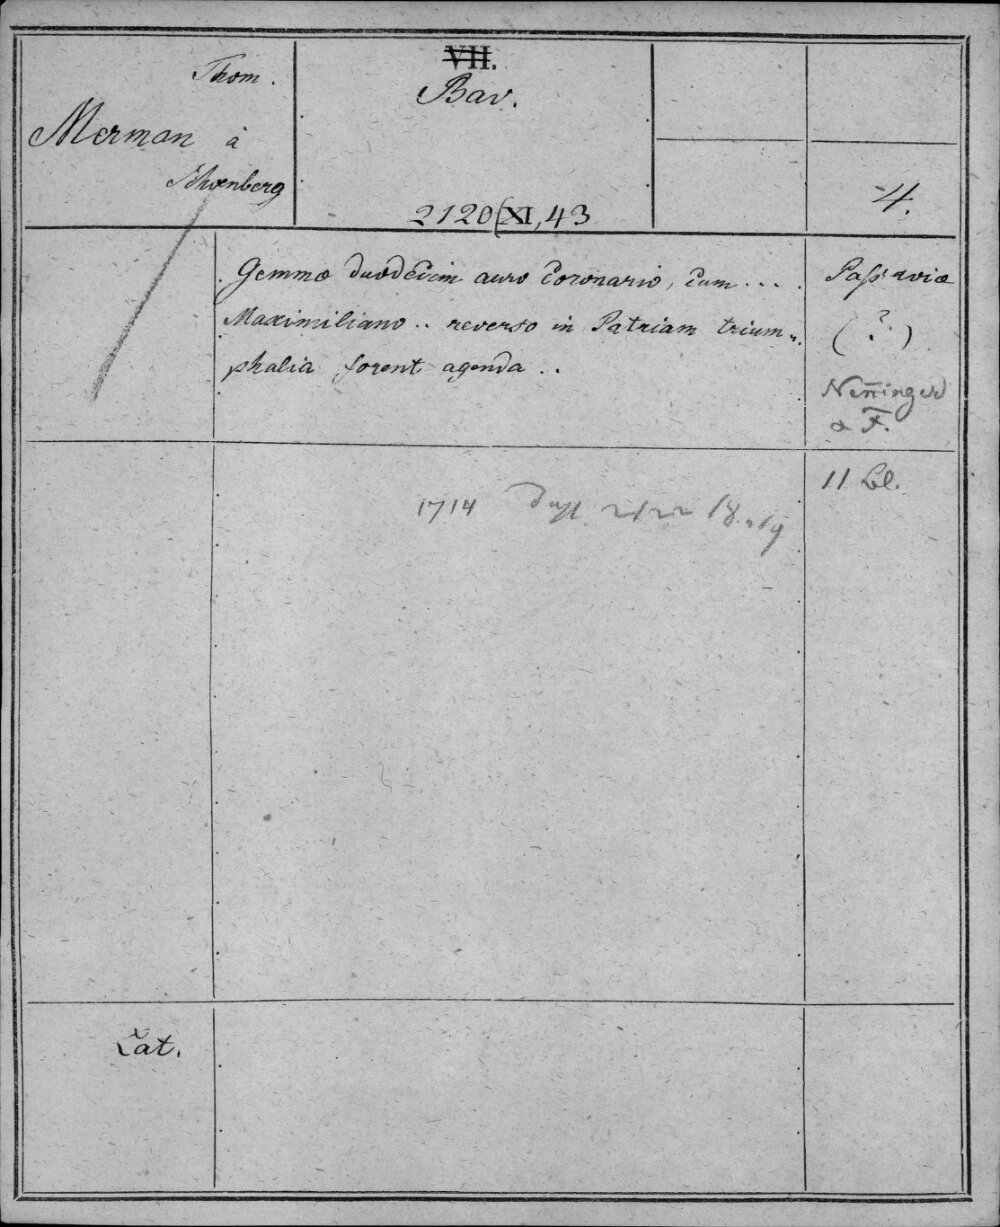 Thom.
Merman à
Schœnberg
VII.
Bav.
2120 (XI, 43
4.
Gemmæ duodecim auro coronario, cum ...
Maximiliano .. reverso in Patriam trium-
phalia forent agenda ..
Passaviæ
( ? )
Nenninger
a F.
11 Bl.
1714
Lat.